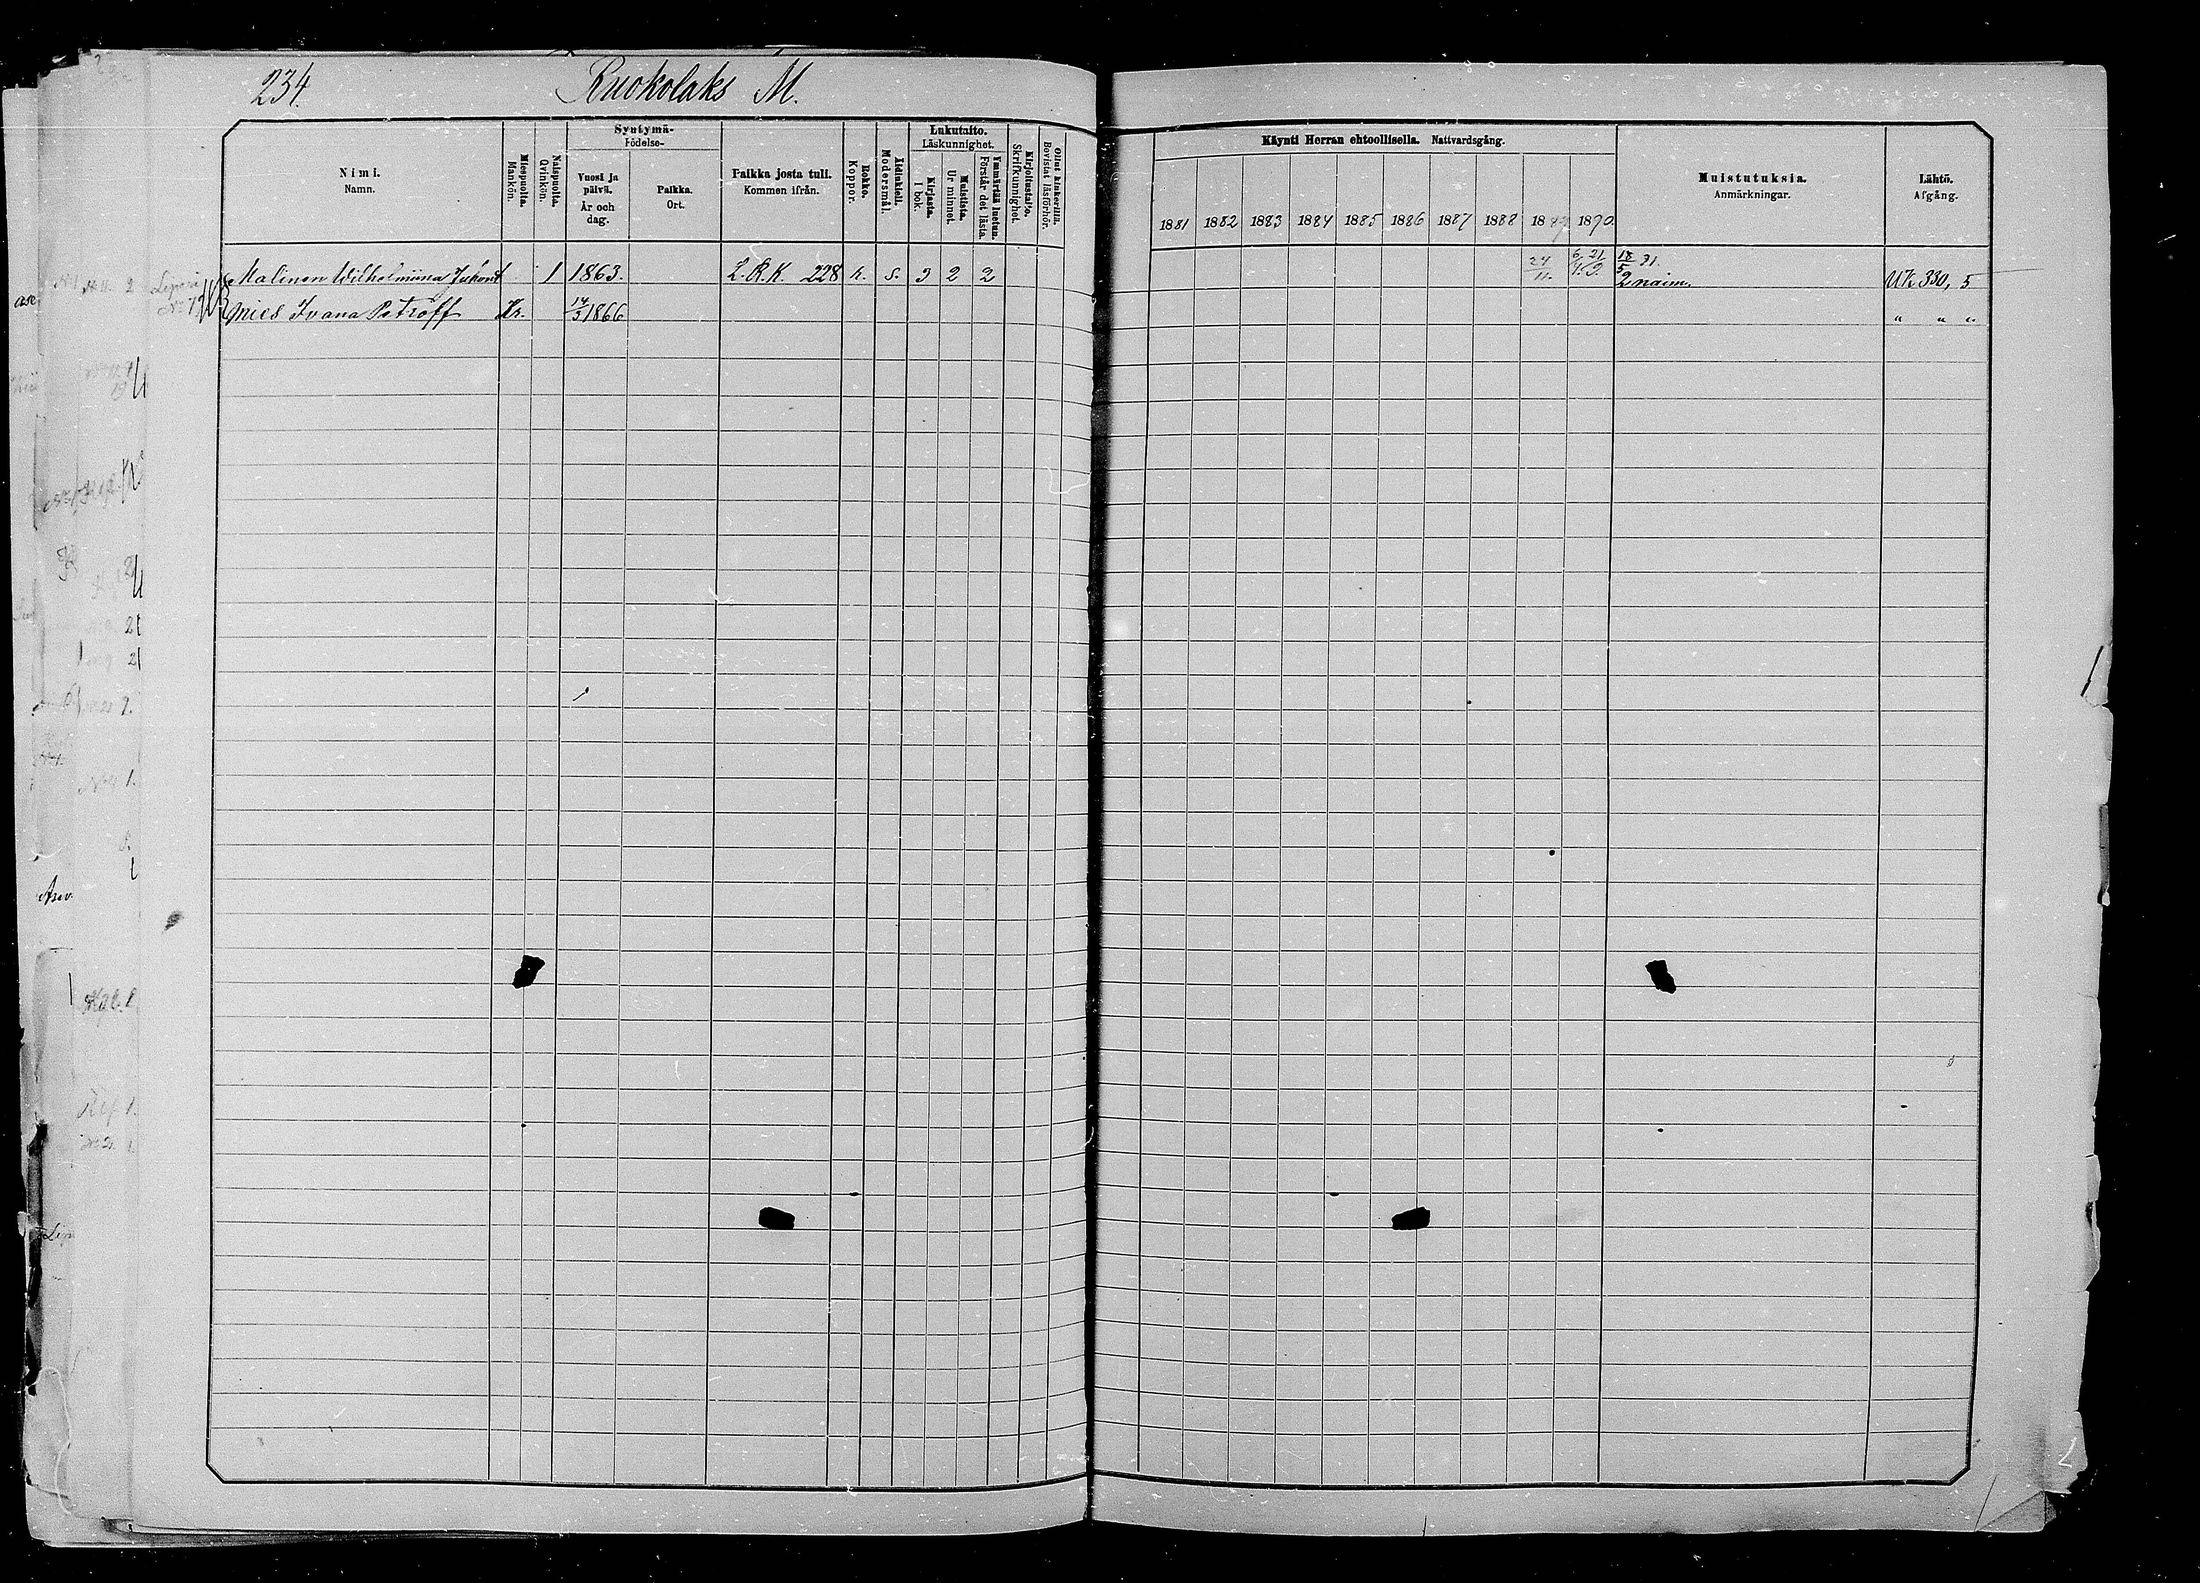 234. Ruokolaks M.
Nimi.
Namn.
Miespuolia.
Mankön.
Naispuolia.
Qvinkön.
Syntymä-
Födelse-
Vuosi ja päivä.
År och dag.
Paikka.
Ort.
Paikka josta tuli.
Kommen ifrån.
Rokko.
Koppor.
Äidinkieli.
Modersmål.
Lukutaito.
Läskunnighet.
Kirjasta.
I bok.
Muistista.
Ur minnet.
Ymmärtää luetun.
Förstår det lästa.
Kirjoitustaito.
Skrifkunnighet.
Ollut kinkerillä.
Bevistat läsförhör.
Käynti Herran ehtoollisella. Nattvardsgång.
1881 1882 1883 1884 1885 1886 1887 1888 1889 1890.
Muistutuksia.
Anmärkningar.
Lähtö.
Afgång.
Malinen Wilhelmiina 1 1863. L.R.K. 228 r. s. 3 2 2 24/11. 6/4. 21/9. 18/5 31. 2 naim. UK 330, 5
mies Ivana Petroff Kr. 14/3 1866 " " "